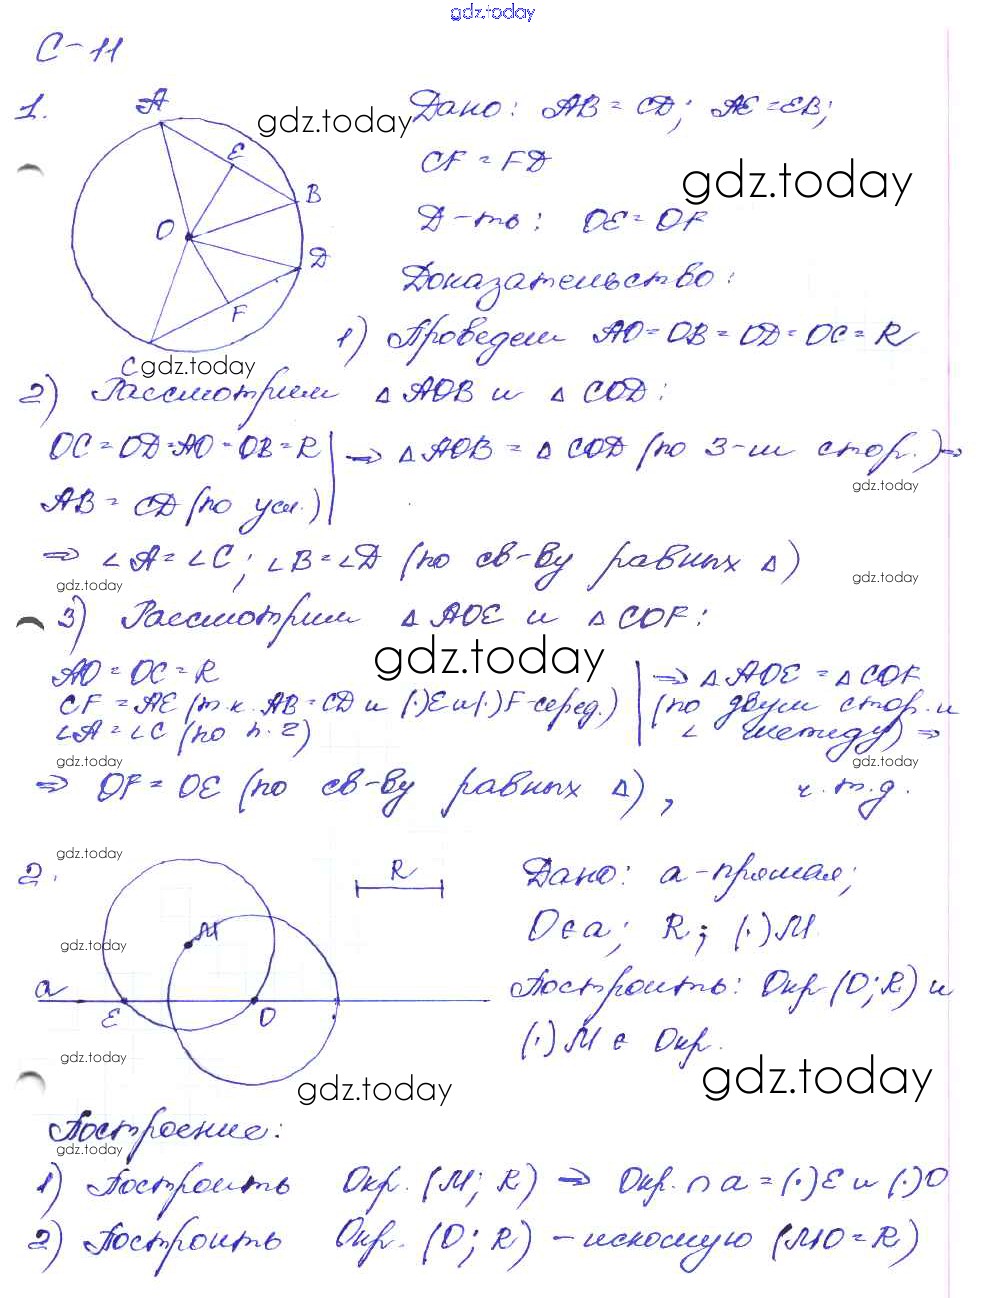 gdz.today
С-11
1.
A
E
B
O
D
F
C
gdz.today
Дано: AB = CD; AE = EB;
CF = FD
gdz.today
Д-ть: OE = OF
Доказательство:
1) Проведем AO = OB = OD = OC = R
gdz.today
2) Рассмотрим △ AOB и △ COD:
OC = OD = AO = OB = R | ⇒ △ AOB = △ COD (по 3-м стор.) ⇒
gdz.today
AB = CD (по усл.)
⇒ ∠A = ∠C; ∠B = ∠D (по св-ву равных △)
gdz.today
gdz.today
3) Рассмотрим △ AOE и △ COF:
gdz.today
AO = OC = R | ⇒ △ AOE = △ COF
CF = AE (т.к. AB = CD и (·)E и (·)F-серед.) | (по двум стор. и
∠A = ∠C (по п. 2) | ∠ между) ⇒
gdz.today
gdz.today
⇒ OF = OE (по св-ву равных △), ч.т.д.
gdz.today
2.
R
M
gdz.today
a
E
O
gdz.today
gdz.today
Дано: a-прямая;
O∈a; R; (·)M.
Построить: Окр (O; R) и
(·) M ∈ Окр.
gdz.today
Построение:
gdz.today
1) Построить Окр. (M; R) ⇒ Окр. ∩ a = (·) E и (·) O
2) Построить Окр. (O; R) - искомую (MO = R)